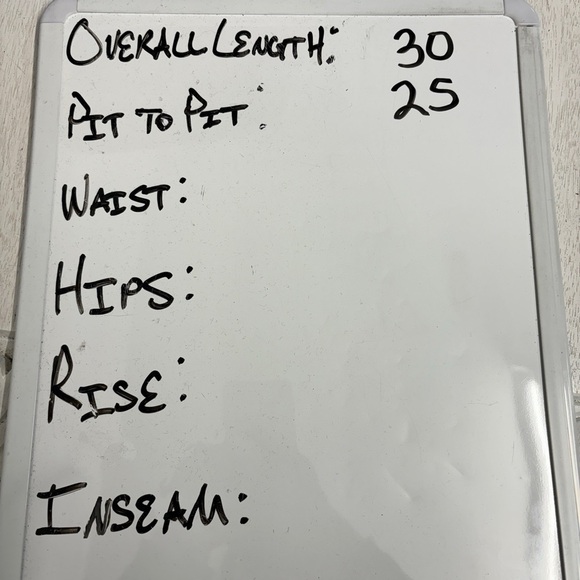 OVERALL LENGTH: 30
PIT TO PIT: 25
WAIST:
HIPS:
RISE:
INSEAM: